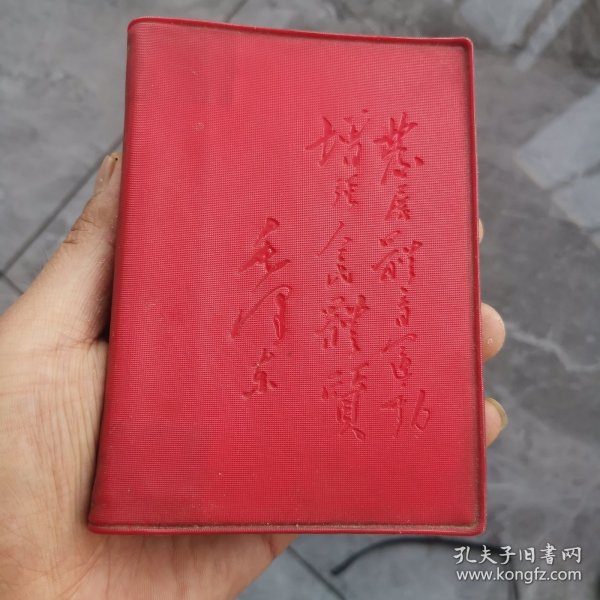 發展體育運動
增强人民體質
毛泽东
孔夫子旧书网
www.kongfz.com